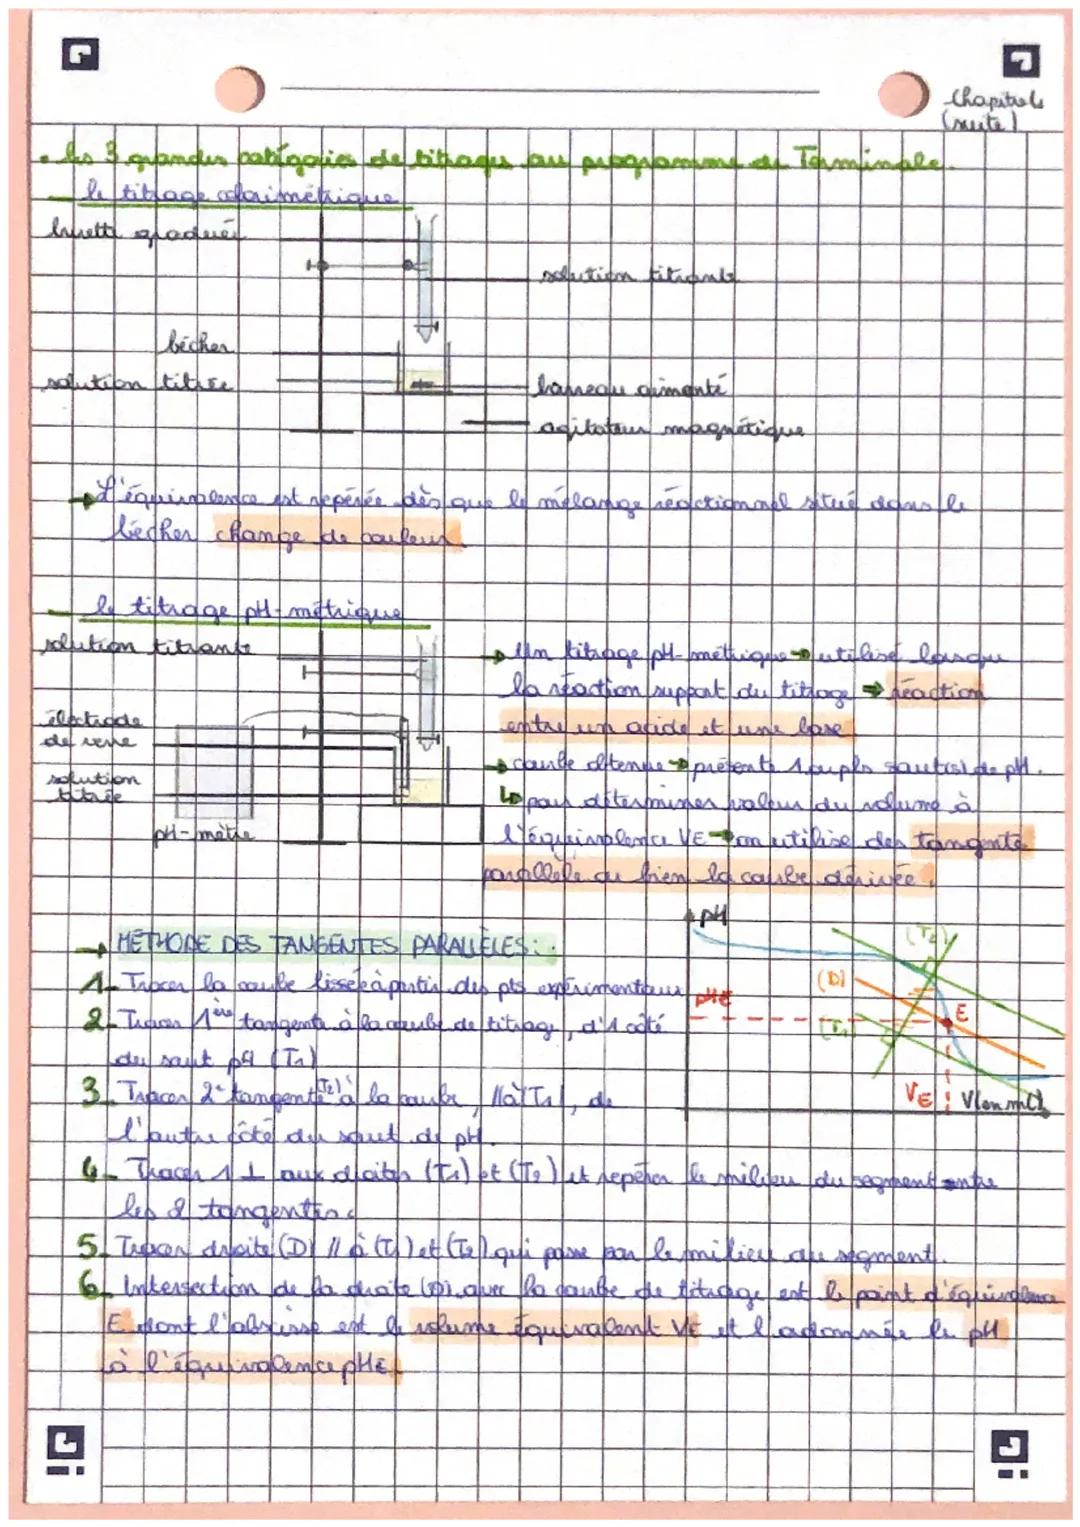 Chapitre 6
(suite)
• les 3 grandes catégories de titrages au programme de Terminale.
- le titrage colorimétrique
burette graduée
solution titrante
bécher
solution titrée
barreau aimanté
agitateur magnétique
→ L'équivalence est repérée dès que le mélange réactionnel situé dans le
bécher change de couleur
- le titrage pH-métrique
solution titrante
électrode
de verre
solution
titrée
pH-mètre
→ Un titrage pH-métrique → utilisé lorsque
la réaction support du titrage → réaction
entre un acide et une base
→ courbe obtenue → présente 1 ou pls saut(s) de pH.
↳ pour déterminer valeur du volume à
l'équivalence VE → on utilise des tangente
parallèle ou bien la courbe dérivée.
→ MÉTHODE DES TANGENTES PARALLÈLES :
1- Tracer la courbe lissée à partir des pts expérimentaux
2- Tracer 1ère tangente à la courbe de titrage, d'1 côté
du saut pH (T1)
3- Tracer 2e tangente (T2) à la courbe, // à (T1), de
l'autre côté du saut de pH.
4- Tracer 1 ⊥ aux droites (T1) et (T2) et repérer le milieu du segment entre
les 2 tangentes
5- Tracer droite (D) // à (T1) et (T2) qui passe par le milieu du segment.
6- Intersection de la droite (D) avec la courbe de titrage est le point d'équivalence
E dont l'abscisse est le volume équivalent VE et l'ordonnée le pH
à l'équivalence pHE
pH
(T2)
(D)
pHE
E
(T1)
VE
V(en mL)